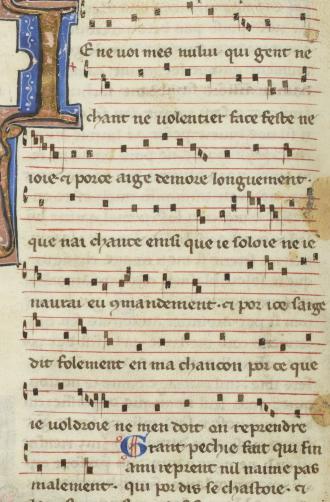 E ne voi mes nului qui gent ne
chant ne volentier face feste ne
ioie · ci porce aige demore longuement ·
que nai chante ensi que ie soloie ne ie
naurai eu 9mandement · ci por ice saige
dit folement en ma chancon por ce que
ie voldroie ne men doit on reprendre
Grant pechie fait qui fin
ami reprent nil naime pas
malement · qui por dis se chastoie · ci